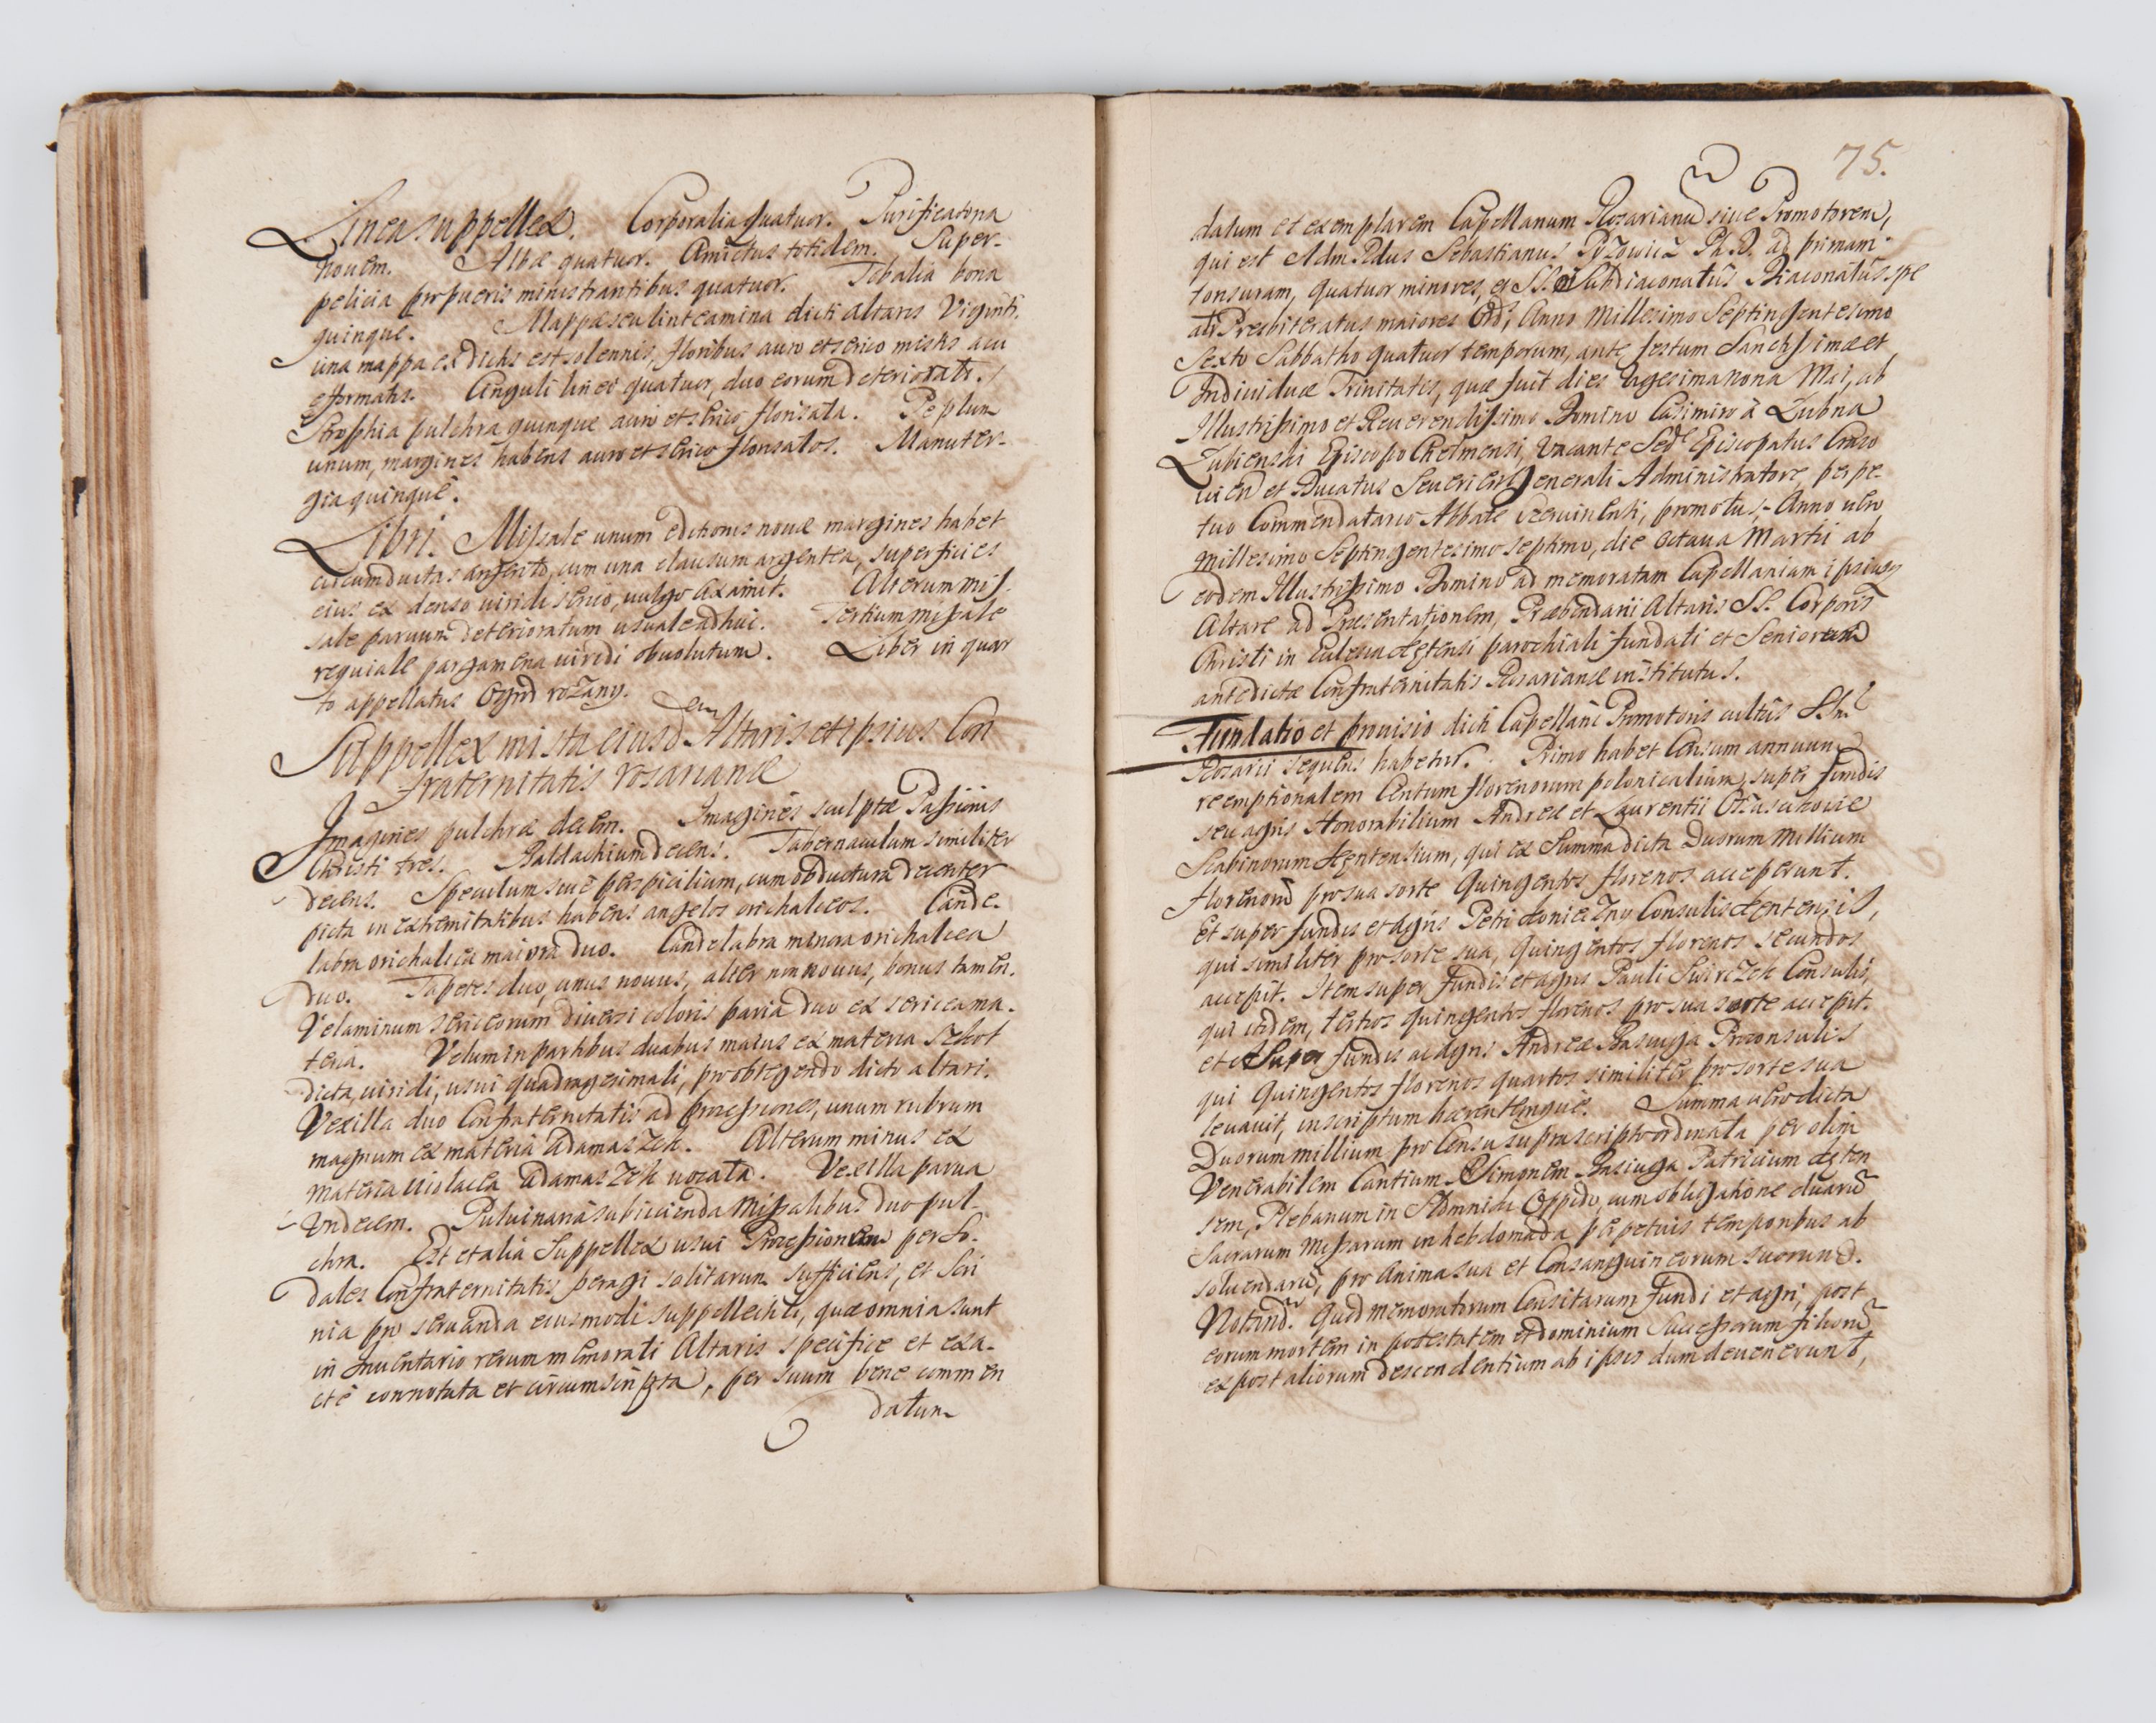 Linea suppellex. Corporalia quatuor. Purificatoria
nouem. Albæ quatuor. Amictus totidem. Super-
pelicia pro pueris ministrantibus quatuor. Tobalia bona
quinque. Mappæ seu linteamina dicti altaris Viginti.
una mappa ex dictis est solennis, floribus auro et serico mistis acu
efformatis. Cinguli linei quatuor, duo eorum deteriorati.
Strophia pulchra quinque auro et serico florisata. Peplum
unum, margines habens auro et serico florisatos. Manuter-
gia quinque.
Libri. Missale unum editionis nouæ margines habet
circumductas argento, cum una clausura argentea, superficies
eius ex denso uiridi serico, uulgo axamit. Alterum mis-
sale paruum deterioratum usuale adhuc. Tertium missale
requiale pargamena uiridi obuolutum. Liber in quar
to appellatus Ogrod rożany.
Suppellex mista eiusdem Altaris et ipsius Con
fraternitatis rosarianæ
Imagines pulchræ decem. Imagines sculptæ Passionis
Christi tres. Baldachium decens. Tabernaculum similiter
decens. Speculum siue perspicilium, cum obductura decenter
picta in extremitatibus habens angelos orichalceos. Cande-
labra orichalcea maiora duo. Candelabra minora orichalcea
duo. Tapetes duo, unus nouus, alter non nouus, bonus tamen.
Velaminum sericeorum diuersi coloris paria duo ex sericea ma-
teria. Velum in partibus duabus maius ex materia Szkot
dicta, uiridi, usui quadragesimali, pro obtegendo dicto altari.
Vexilla duo Confraternitatis ad processiones, unum rubrum
magnum ex materia adamaszek. Alterum minus ex
materia uiolacea adamaszek uocata. Vexilla parua
Vndecem. Puluinaria subiicienda Missalibus duo pul-
chra. Est et alia Suppellex usui Processionum per So-
dales Confraternitatis peragi solitarum sufficiens, et Scri
nia pro seruanda eiusmodi suppellectili, quæ omnia sunt
in Inuentario rerum memorati Altaris specifice et exa-
cte connotata et circumscripta, per suum bene commen
datum
75.
datum et exemplarem Capellanum Rosarianū siue Promotorem,
qui est Adm Rdus Sebastianus Pyzowicz Ph. D. ad primam
tonsuram, quatuor minores, et SS. Subdiaconatûs Diaconatûsque
Presbiteratus maiores Ord; Anno Millesimo Septingentesimo
Sexto Sabbatho quatuor temporum, ante festum Sanctissimæ et
Indiuiduæ Trinitates, quæ fuit dies uigesima nona Mai, ab
Illustrissimo et Reuerendissimo Domino Casimiro à Łubna
Łubienski Episcopo Chelmensi, Vacante Sede Episcopatus Craco
uien et Ducatus Seuerien Generali Administratore, perpe-
tuo Commendatario Abbate Czeruinensi, promotus, Anno uero
Millesimo Septingentesimo septimo, die octaua Martii ab
eodem Illustrissimo Domino ad memoratam Capellaniam ipsiusq
Altare ad Præsentationem, Præbendarii Altaris SS. Corporis
Christi in Eclesia parochiali fundati et Seniorum
antedictæ Confraternitatis Rosarianæ institutus.
Fundatio et prouisio dicti Capellani Promotoris cultûs
Rosarii sequens habetur. Primo habet Censum annuum
reemptionalem Centum florenorum polonicalium, super fundis
seu agris Honorabilium Andreæ et Laurentii
Scabinorum, qui ex Summa dicta Duorum Millium
florenorū pro sua sorte Quingentos florenos acceperunt.
Et super fundis et agris Petri Koniezny Consulis,
qui similiter pro sorte sua, quingentos florenos secundos
accepit. Item super fundis et agris Pauli Swirczek Consulis,
qui itidem, tertios quingentos florenos pro sua sorte accepit.
et Super fundis ac agris Andreæ Basciuga Proconsulis
qui Quingentos florenos quartos similiter pro sorte sua
leuauit, inscriptum hærentemque. Summa uero dicta
Duorum millium pro Censu suprascripto ordinata per olim
Venerabilem Cantium Simonem Basiuga Patricium
sem, Plebanum in Oppido, cum obligatione duarū
Sacrarum Missarum in hebdomada, perpetuis temporibus ab
soluendarū, pro Anima sua et Consanguineorum suorund.
Notand. Quod memoratorum Censitarum fundi et agri, post
eorum mortem in potestatem et dominium Successorum filiorū
ex post aliorum descendentium ab ipsis dum deuenerunt,